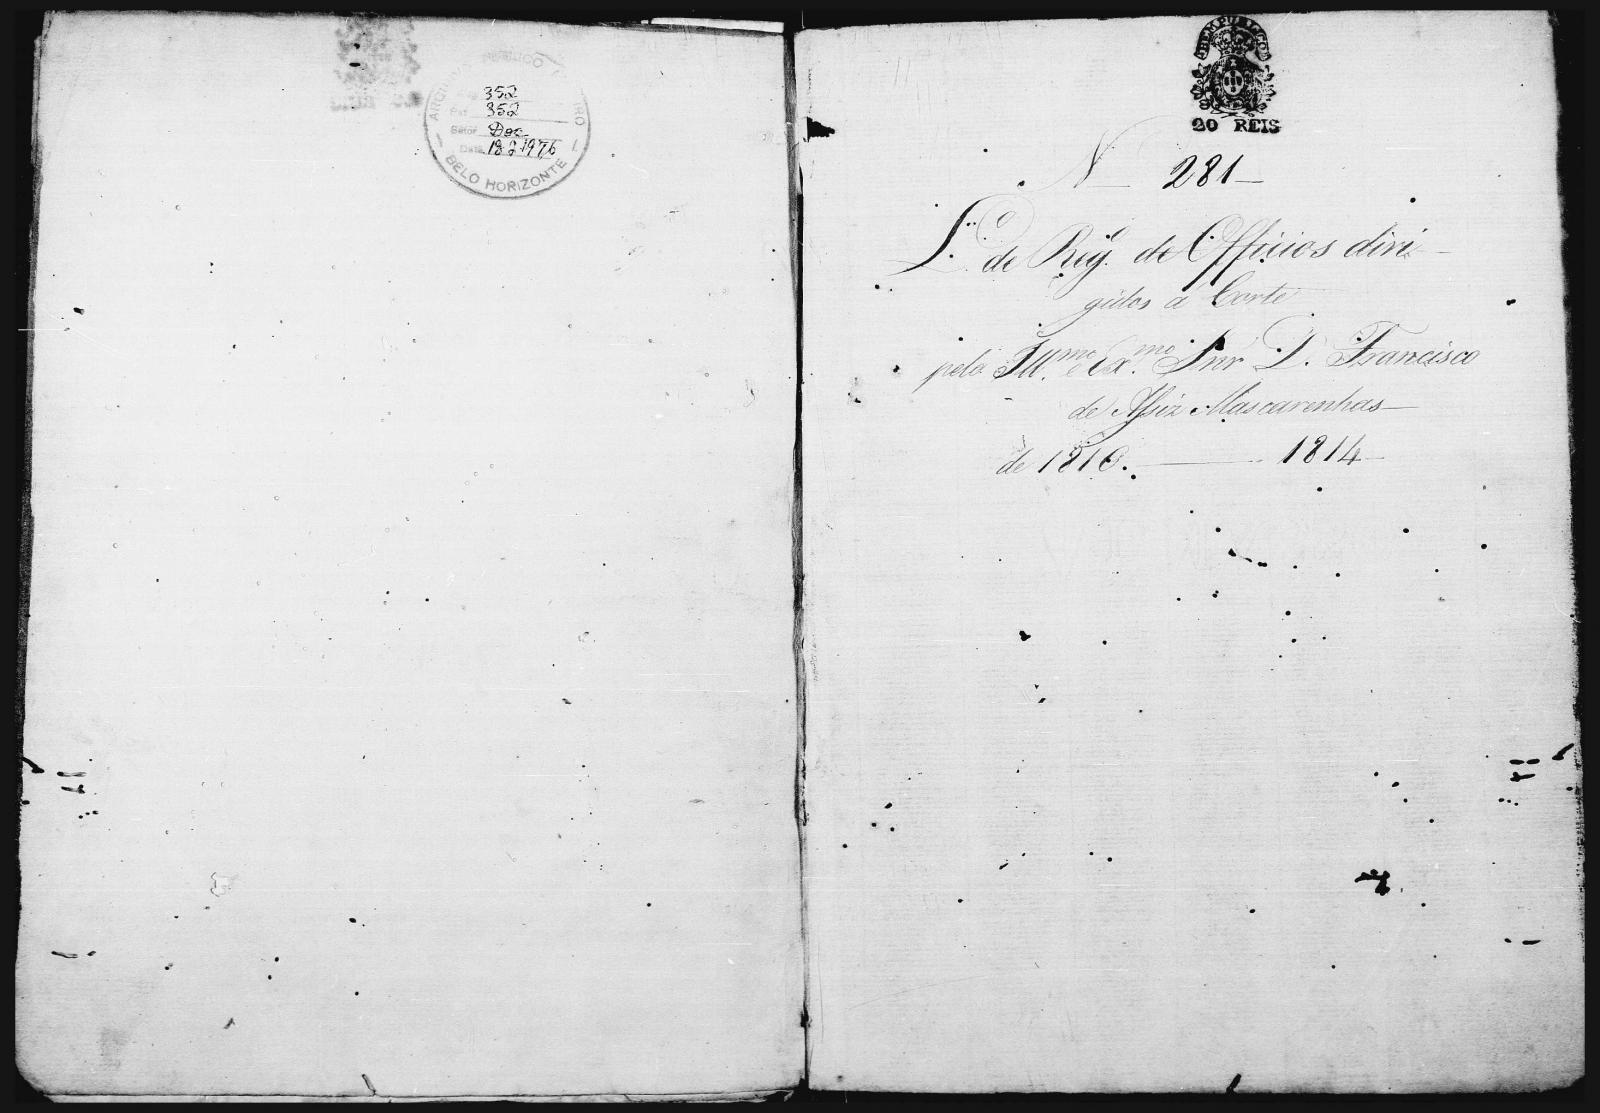 ARQUIVO PUBLICO MINEIRO
352
Est. 352
Setor Doc
Data 18 2 1976
BELO HORIZONTE
BEM PUBLICO
20 REIS
N 281
L.º de Reg.º de Officios diri-
gidos a Corte
pelo Ill.mo e Ex.mo Snr D. Francisco
de Assiz Mascarenhas
de 1810. 1814